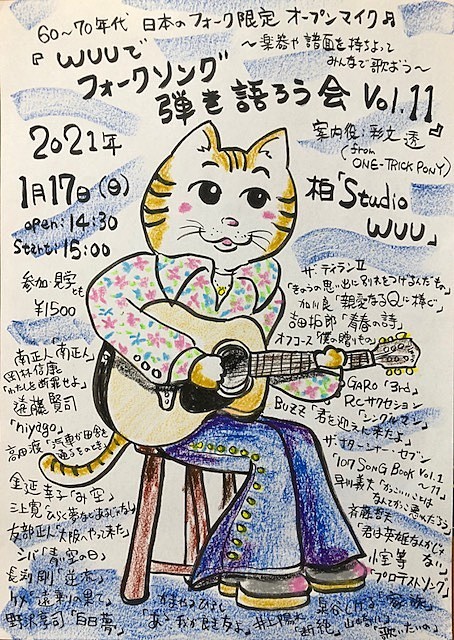 60〜70年代 日本のフォーク限定 オープンマイク♬
〜楽器や譜面を持ちよって
みんなで歌おう〜
『WUUで
フォークソング
弾き語ろう会 Vol.11』
案内役:彩文 透
(from
ONE-TRICK PONY)
2021年
1月17日(日)
open:14:30
Start:15:00
柏「Studio
WUU」
参加・見学とも
¥1500
ザ・ディランⅡ
「きのうの思い出に別れをつげるんだもの」
加川良「親愛なるQに捧ぐ」
吉田拓郎「青春の詩」
オフコース「僕の贈りもの」
GARO「3rd」
RCサクセション
「シングル・マン」
BUZZ「君を迎えに来たよ」
ザ・ナターシャー・セブン
「107 SONG Book Vol.1
早川義夫「かっこいいことは
なんてかっこ悪いんだろう」
斉藤哲夫
「君は英雄なんかじゃない」
小室等
「プロテストソング」
南正人「南正人」
岡林信康
「わたしを断罪せよ」
遠藤賢司
「niyago」
高田渡「汽車が田舎を
通るそのとき」
金延幸子「み空」
三上寛「ひらく夢などあるじゃなし」
友部正人「大阪へやって来た」
シバ「青い空の日」
長渕剛「逆流」
りりィ
野沢享司「白日夢」
かまやつひろし
「あゝ、我が良き友よ」
井上陽水
「断純」
泉谷しげる「家族」